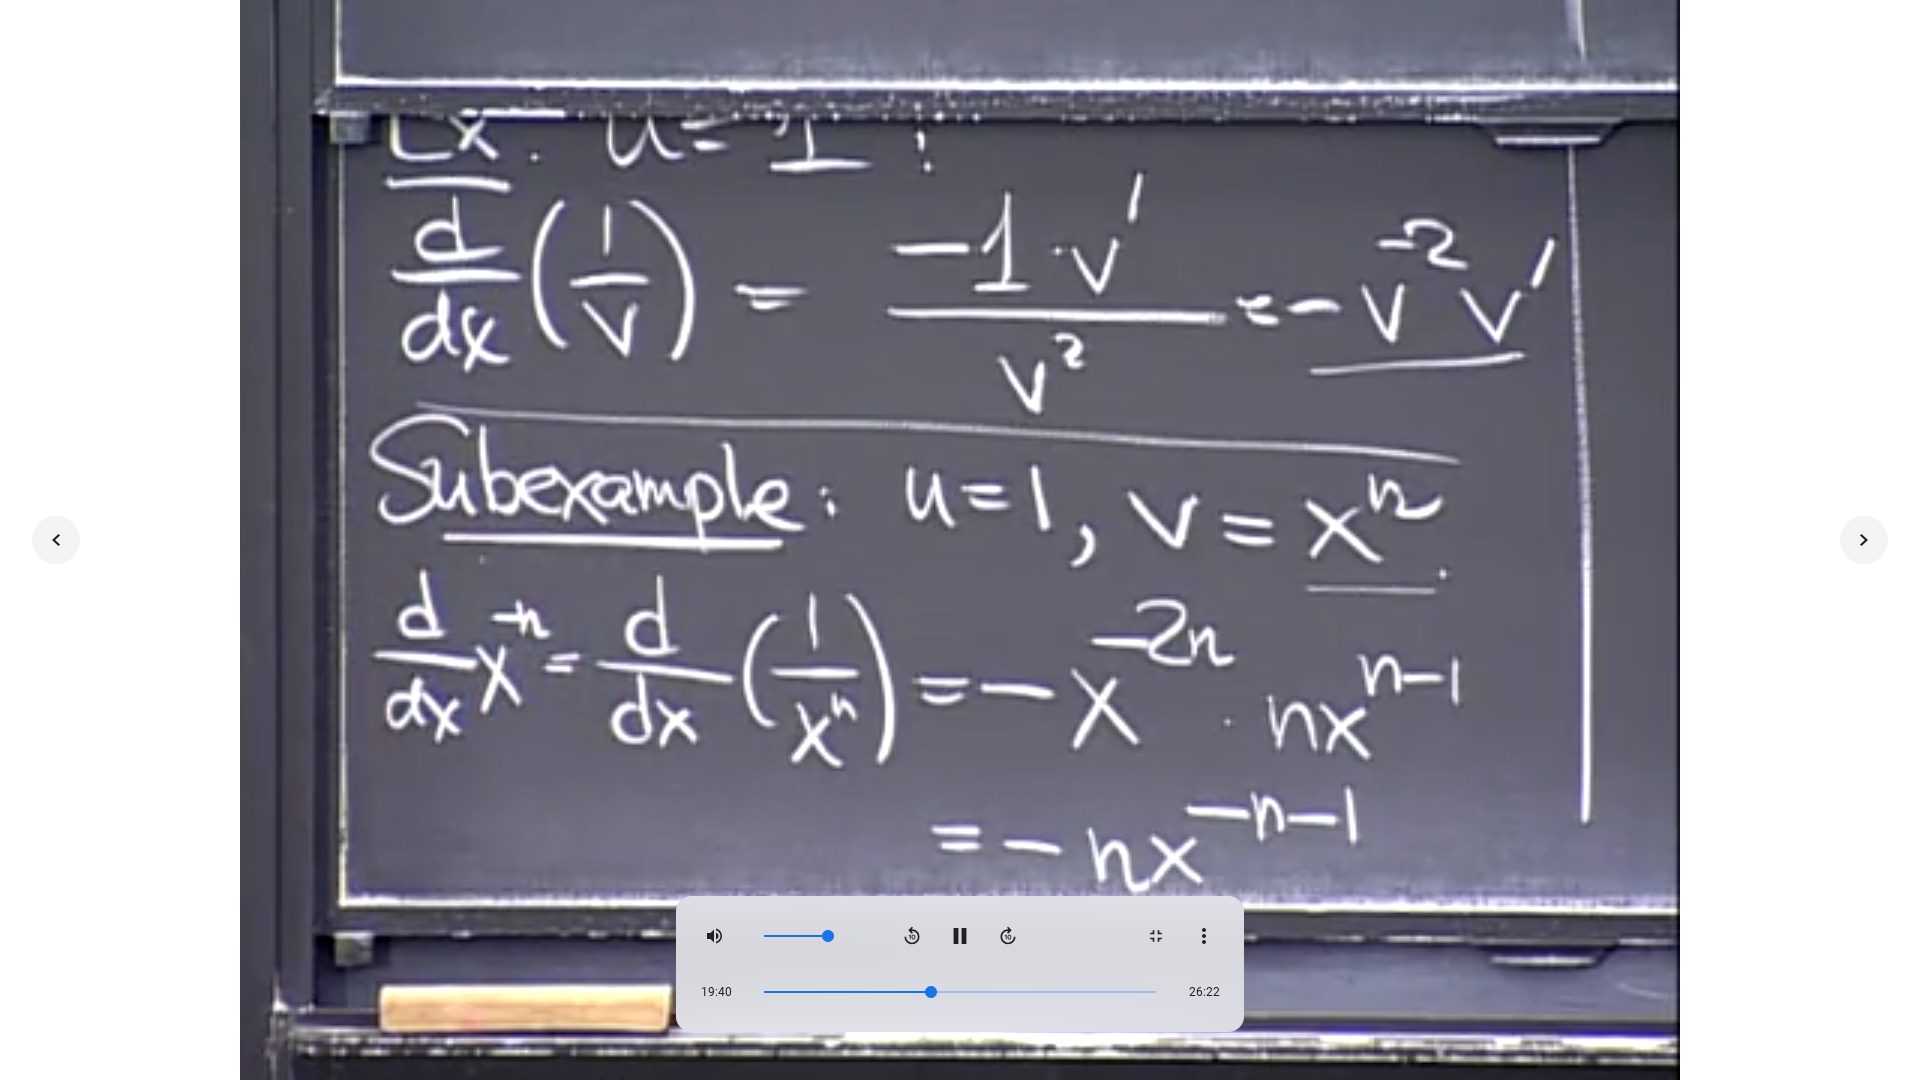 Ex. u = 1 :
d/dx (1/v) = -1·v'/v² = -v⁻²v'
Subexample: u=1, v = xⁿ.
d/dx x⁻ⁿ = d/dx (1/xⁿ) = -x⁻²ⁿ · nxⁿ⁻¹
= -nx⁻ⁿ⁻¹
10
10
19:40
26:22